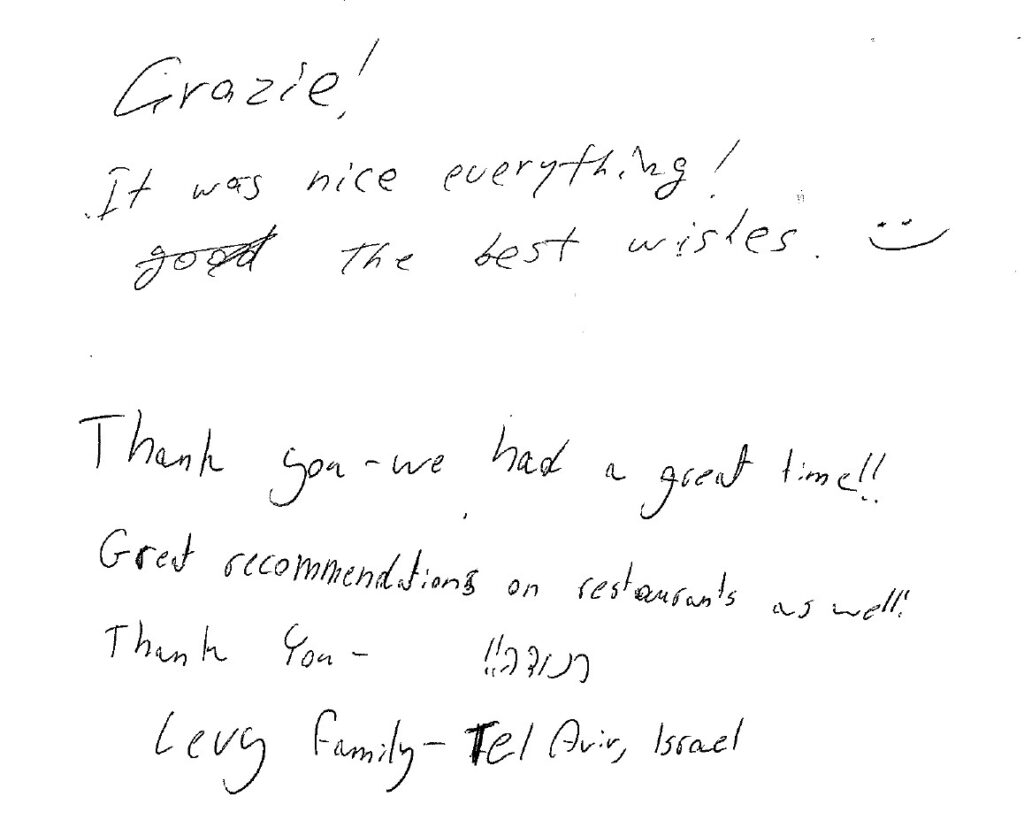 Grazie!
It was nice everything!
good The best wishes. :)
Thank you - we had a great time!!
Great recommendations on restaurants as well!
Thank You - תודה!!
Levy Family - Tel Aviv, Israel